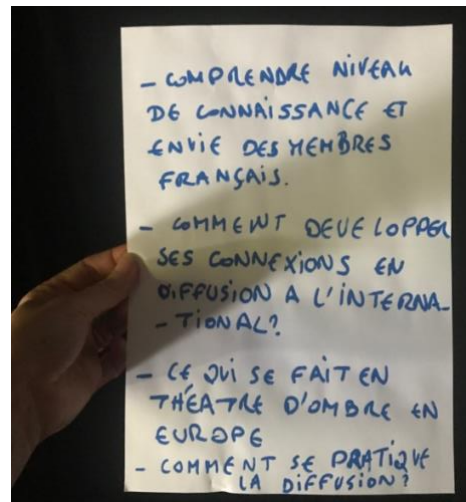 - COMPRENDRE NIVEAU
DE CONNAISSANCE ET
ENVIE DES MEMBRES
FRANÇAIS.
- COMMENT DEVELOPPER
SES CONNEXIONS EN
DIFFUSION A L'INTERNA-
-TIONAL?
- CE QUI SE FAIT EN
THÉATRE D'OMBRE EN
EUROPE
- COMMENT SE PRATIQUE
LA DIFFUSION?